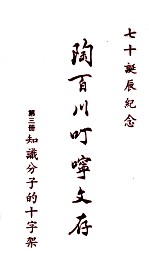 七十誕辰紀念
陶百川叮嚀文存
第三冊
知識分子的十字架